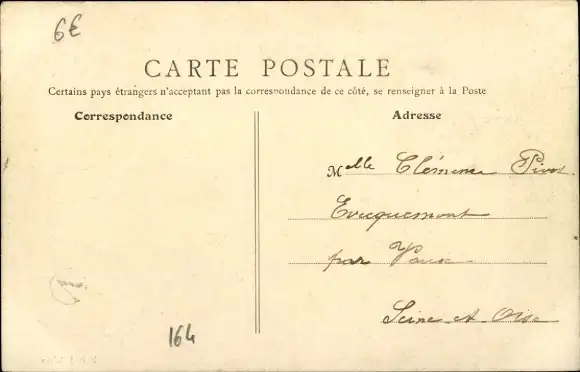 6€
CARTE POSTALE
Certains pays étrangers n'acceptant pas la correspondance de ce côté, se renseigner à la Poste
Correspondance
Adresse
Melle Clémence Pivot
Evecquemont
par Vaux
Seine et Oise
164